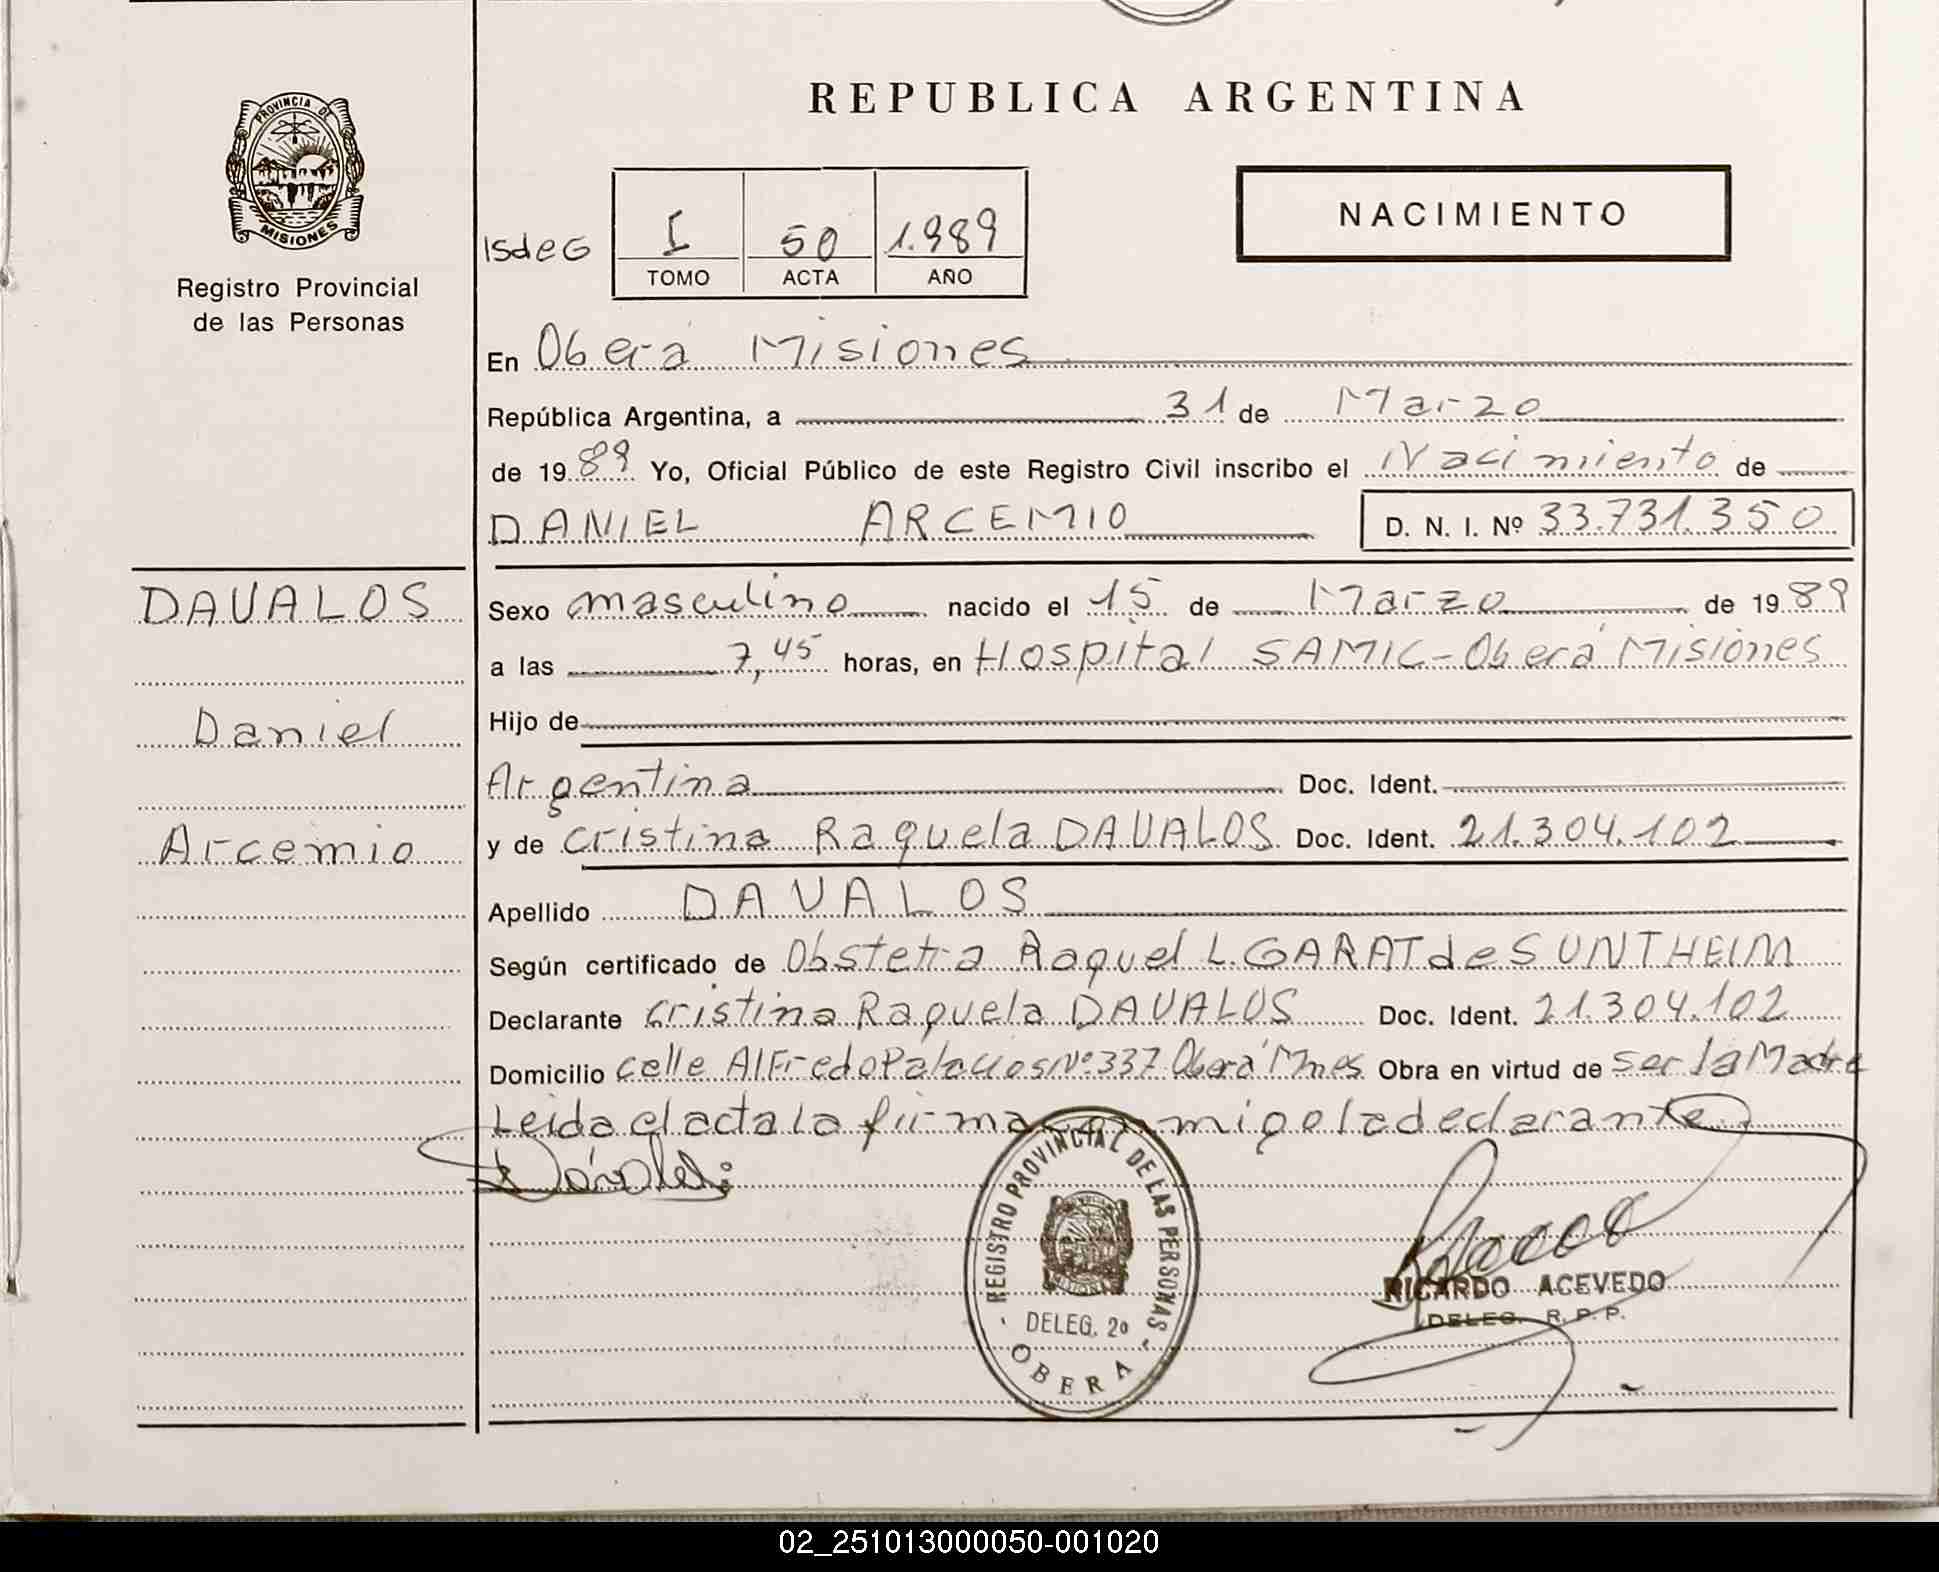 REPUBLICA ARGENTINA
PROVINCIA DE
MISIONES
Registro Provincial
de las Personas
NACIMIENTO
IsdeG
I 50 1.989
TOMO ACTA AÑO
En Oberá Misiones
República Argentina, a 31 de Marzo
de 1989 Yo, Oficial Público de este Registro Civil inscribo el Nacimiento de
DANIEL ARCEMIO D. N. I. Nº 33.731.350
DAVALOS
Daniel
Arcemio
Sexo masculino nacido el 15 de Marzo de 1989
a las 7,45 horas, en Hospital SAMIC-Oberá Misiones
Hijo de
Argentina Doc. Ident.
y de Cristina Raquela DAVALOS Doc. Ident. 21.304.102
Apellido DAVALOS
Según certificado de Obstetra Raquel L. GARAT de SUNTHEIM
Declarante Cristina Raquela DAVALOS Doc. Ident. 21.304.102
Domicilio calle Alfredo Palacios Nº 337 Oberá Mnes Obra en virtud de ser la Madre
Leida el acta la firma con migo la declarante
REGISTRO PROVINCIAL DE LAS PERSONAS
MISIONES
DELEG. 2º
OBERA
RICARDO ACEVEDO
DELEG. R. P. P.
02_251013000050-001020